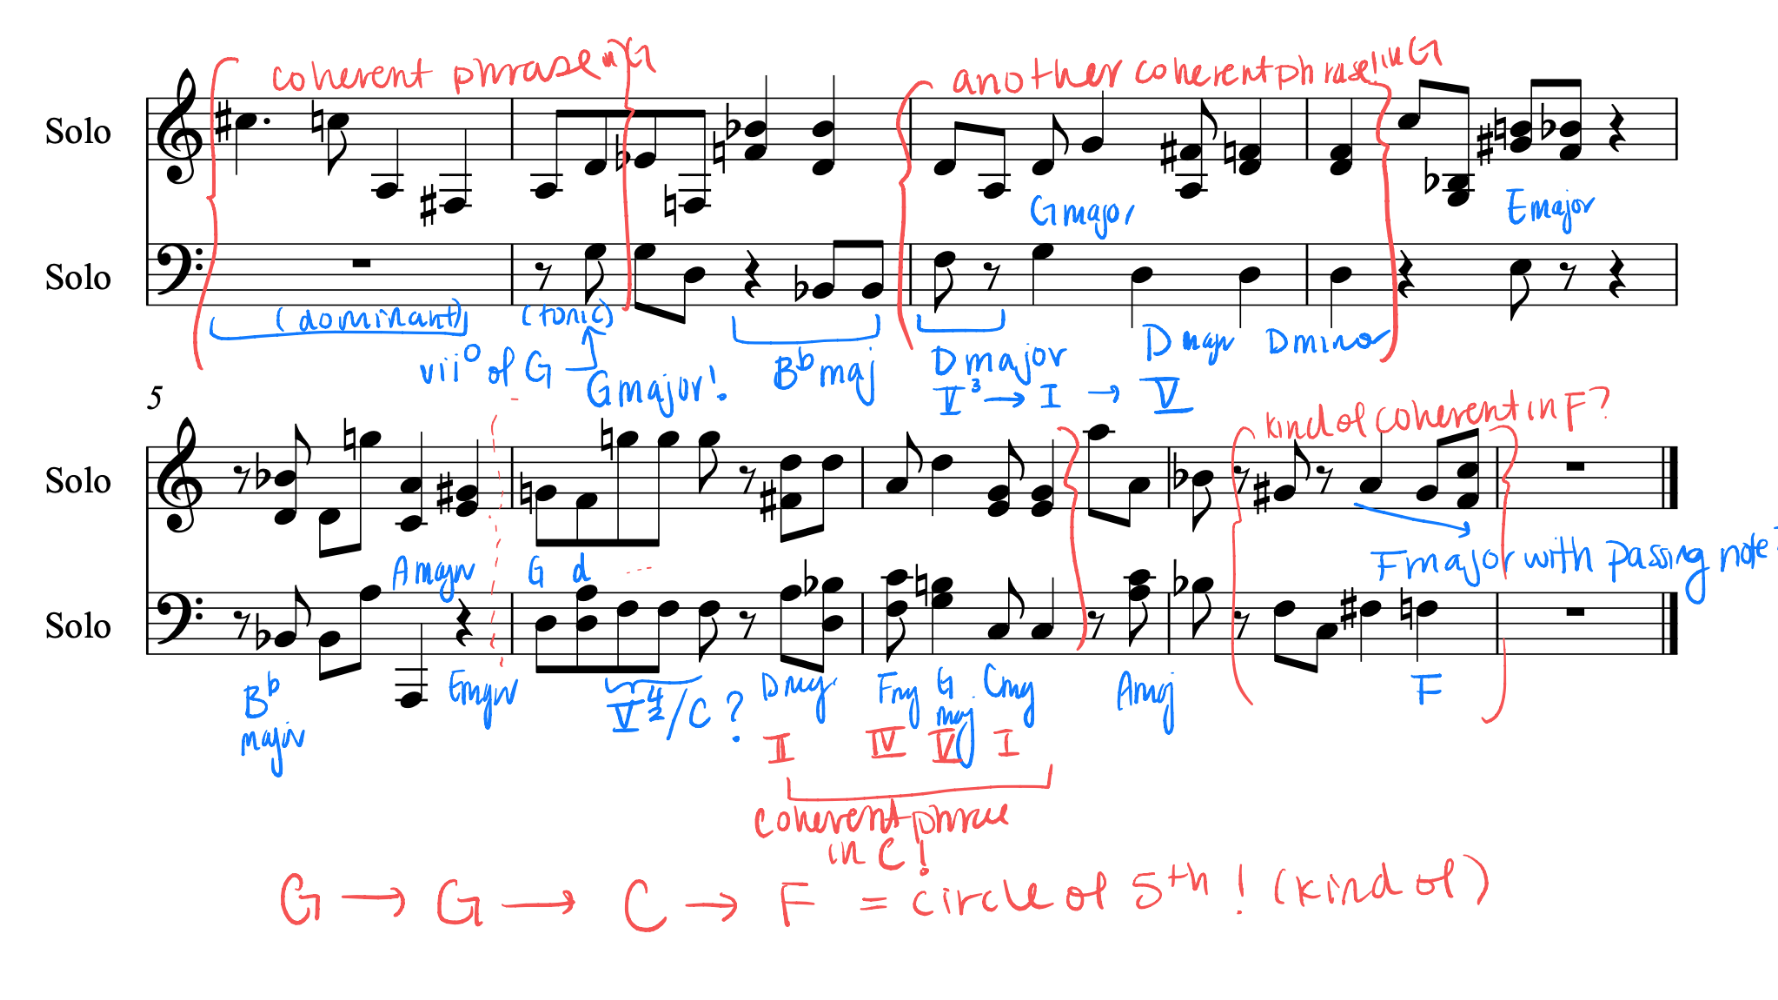 coherent phrase in G
another coherent phrase!! in G
Solo
G major
E major
Solo
(dominant)
(tonic)
vii° of G
G major!
B♭ maj
D major
D major
D minor
V³ → I → V
5
kind of coherent in F?
Solo
A major
G d ...
F major with passing note?
Solo
B♭
major
E major
V 4/2 / C ?
D maj.
F maj
G
maj
C maj
A maj
F
II
IV
V
I
coherent phrase
in C!
G → G → C → F = circle of 5th! (kind of)